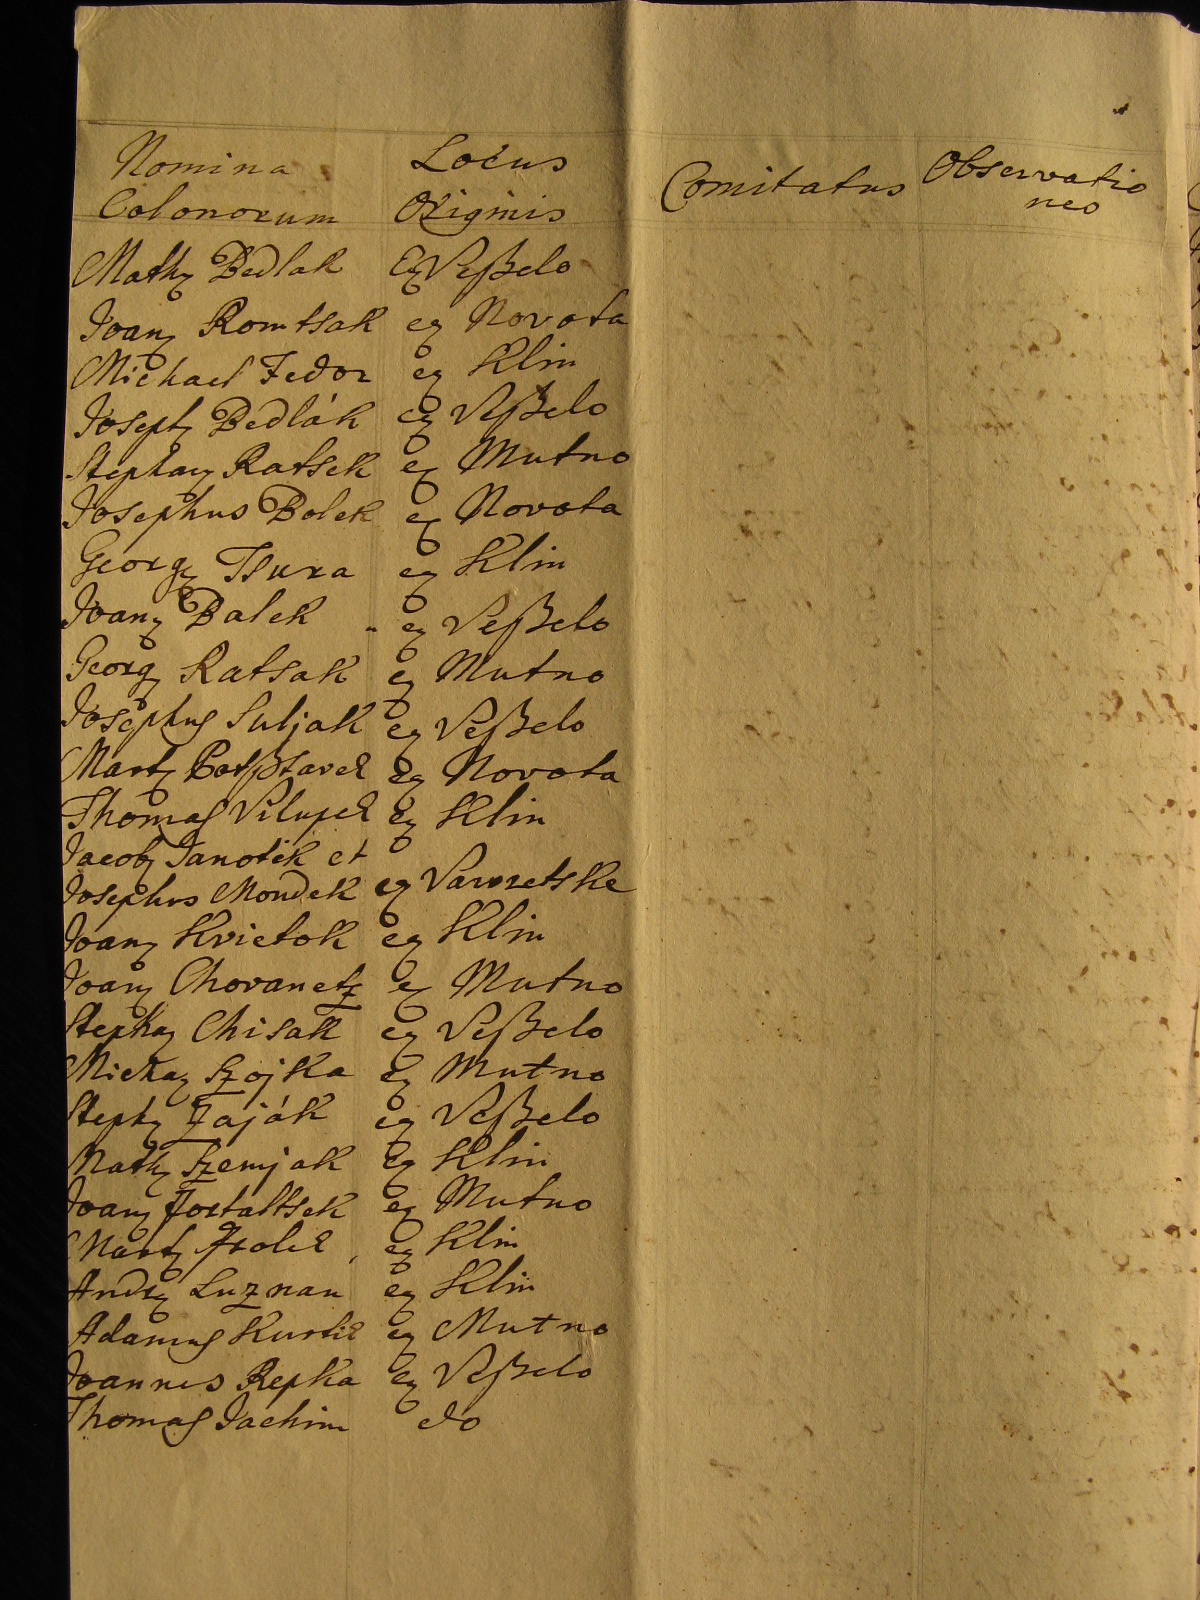 Nomina Locus Comitatus Observatio
Colonorum Originis nes
Math Bedlak Ex Veßelo
Joan Romtsak ex Novota
Michael Fedor ex Klin
Joseph Bedlák ex Veßelo
Stephan Ratsek ex Mutno
Josephus Bolek ex Novota
Georg Tsura ex Klin
Joan Balek ex Veßelo
Georg Ratsak ex Mutno
Josephus Suljak ex Veßelo
Mart ex Novota
Thomas ex Klin
Jacob Janotik et
Josephus Mondek ex Vavretske
Joan Kvietok ex Klin
Joan Chovanetz ex Mutno
Stepha Chisak ex Veßelo
Micha Szojka ex Mutno
Steph Zaják ex Veßelo
Math Szemjak ex Klin
Joan ex Mutno
Mart ex Klin
Andr Luznan ex Klin
Adamus ex Mutno
Joannes Repka ex Veßelo
Thomas Jachim do